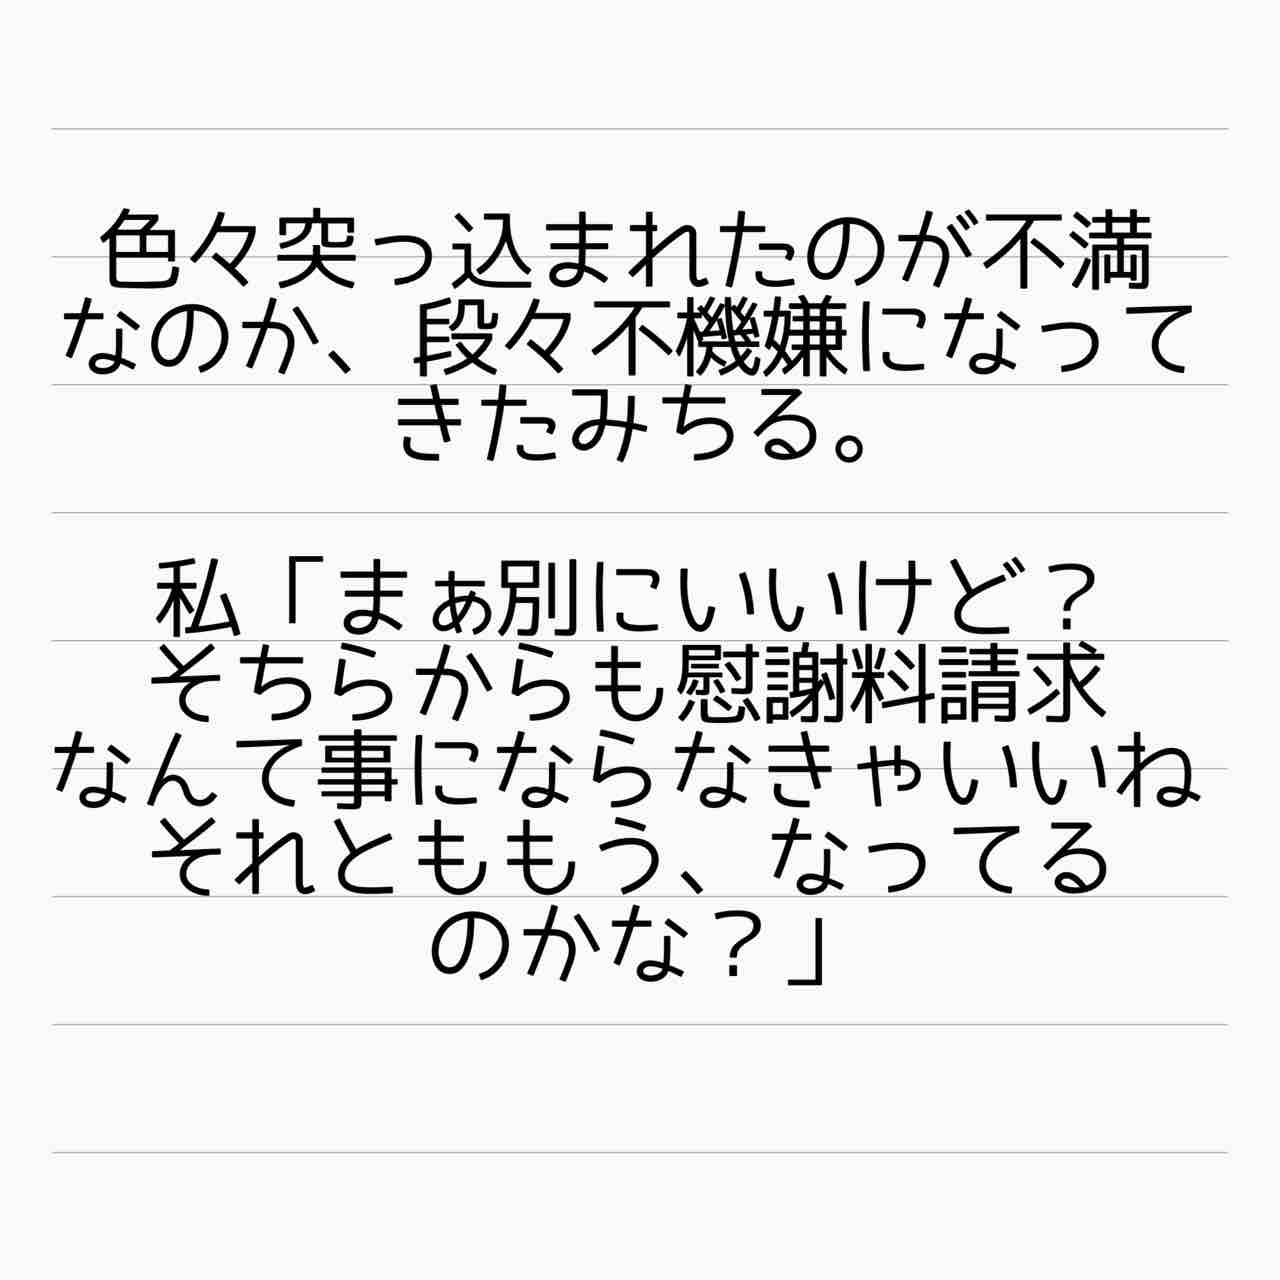 色々突っ込まれたのが不満
なのか、段々不機嫌になって
きたみちる。
私「まぁ別にいいけど？
そちらからも慰謝料請求
なんて事にならなきゃいいね
それとももう、なってる
のかな？」